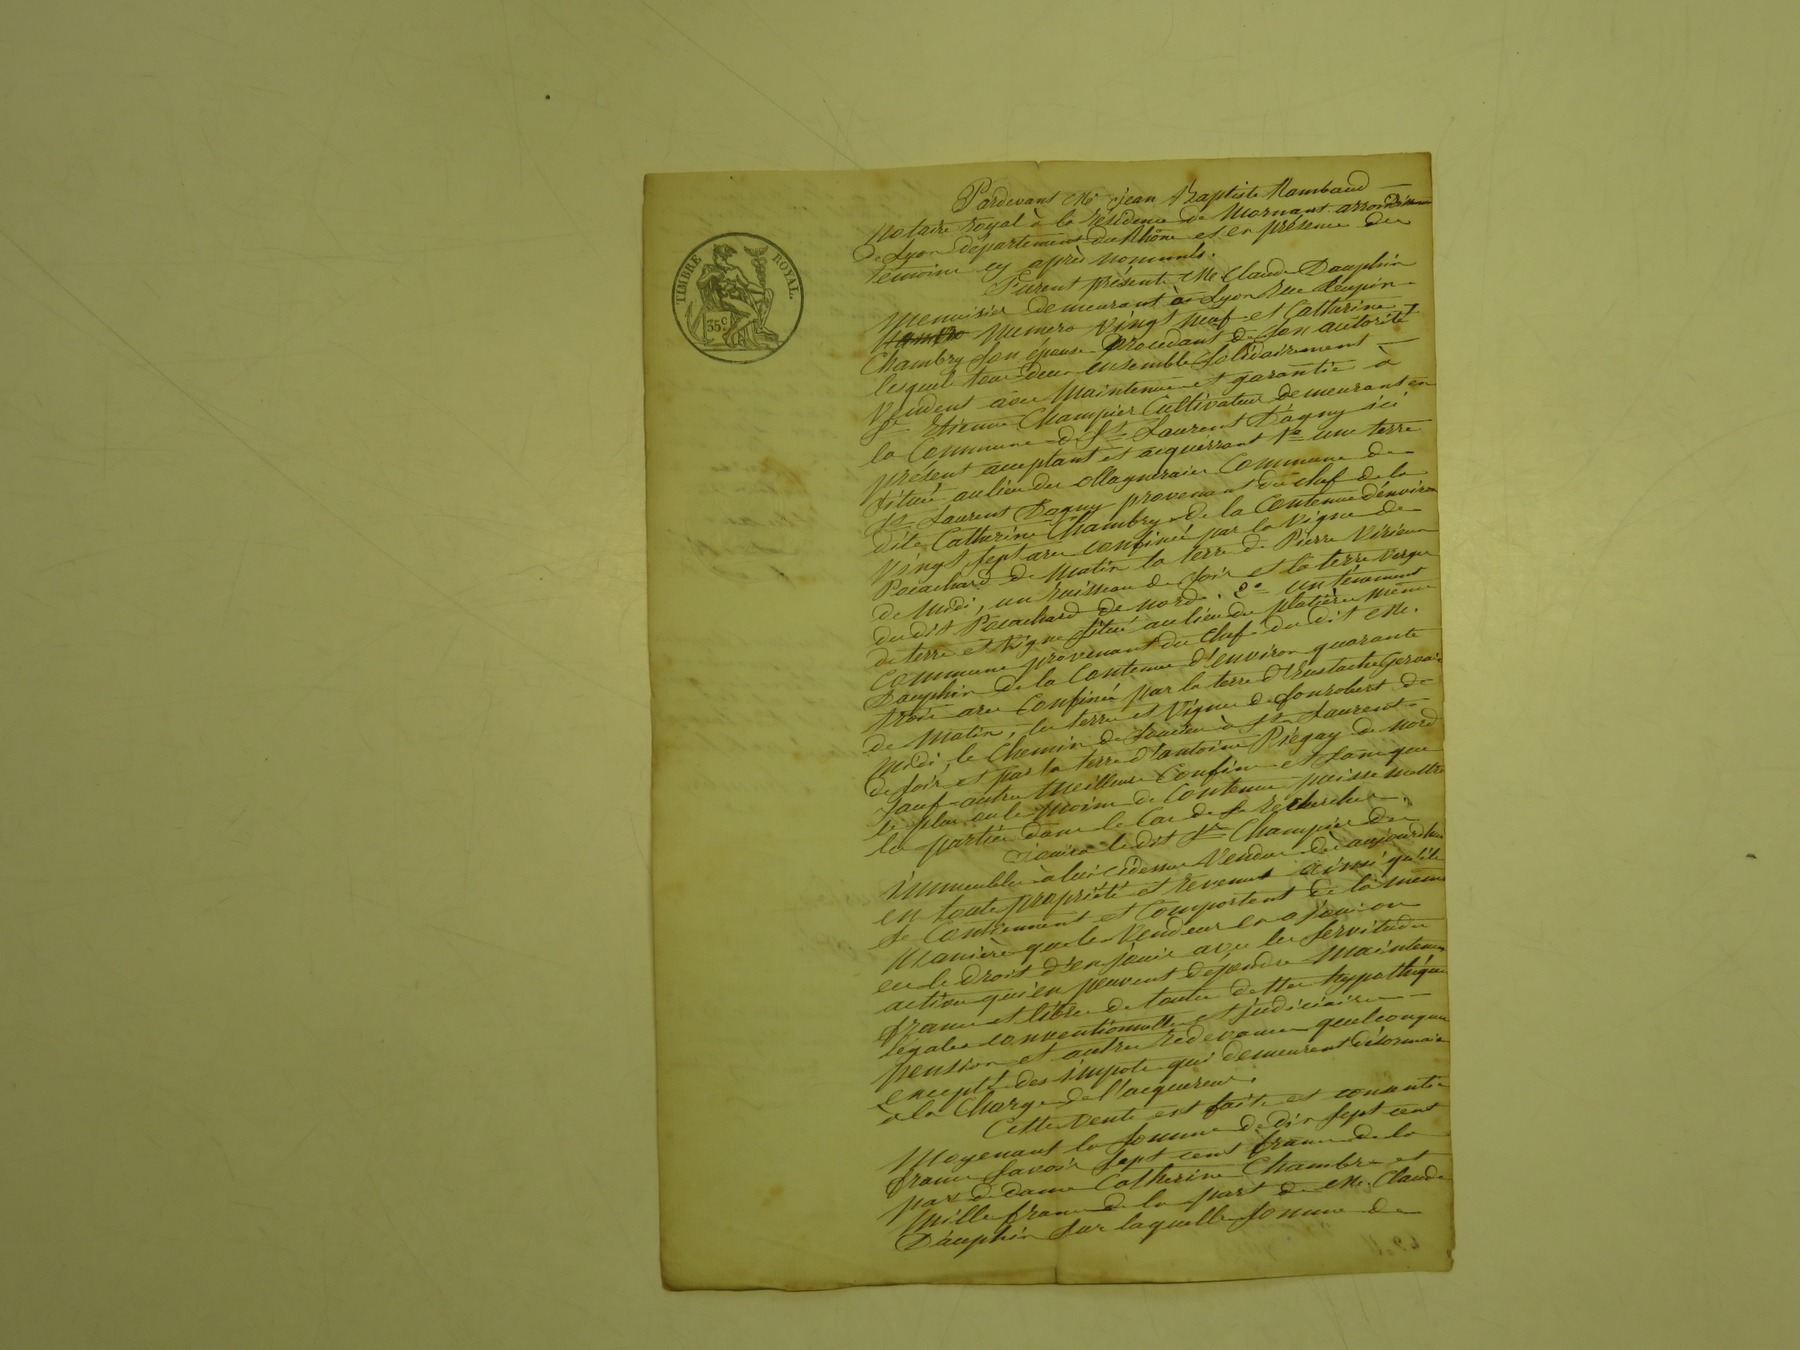 TIMBRE ROYAL.
35 c.
Pardevant Me Jean Baptiste Rambaud
Notaire royal à la résidence de Mornant arrondissement
de Lyon département du Rhône et en présence des
témoins cy après nommés.
Furent présents Mr. Claude Dauphin
menuisier demeurant à Lyon rue
numero vingt neuf et Catherine
Chambry son épouse procédant de son autorité
lesquels tous deux ensemble solidairement
Vendent avec maintenue et garantie à
Sr Etienne Champier Cultivateur demeurant en
la Commune de St Laurent D'agny ici
présent acceptant et acquérant 1º une terre
située au lieu des Commune de
St Laurent D'agny provenant du chef de la
dite Catherine Chambry de la Contenue d'environ
Vingt sept ares confinée par la vigne de
de matin la terre de Pierre
de midi, un ruisseau de soir et la terre verger
du dit de nord. 2º un ténement
de terre et vigne situé au lieu du même
Commune provenant du chef du dit Mr.
Dauphin de la Contenue d'environ quarante
trois ares Confinée par la terre d'Eustache Gervais
de matin, les terre et vigne de de
midi, le chemin de à St Laurent
de soir et par la terre d'antoine Piégay de nord
Sauf autres meilleurs Confins et sans que
le plus ou le moins de Contenue puisse mettre
les parties dans le Cas de se rechercher.
Jouira le dit Sr Champier des
immeubles à lui cidessus Vendus dès aujourdhui
en toute propriété et revenus ainsi qu'ils
se Contiennent et Comportent de la même
Manière que les Vendeurs en a joui ou
eu le droit d'en jouir avec les servitudes
actives qui en peuvent dépendre maintenus
francs et libres de toutes dettes hypothèques
légales conventionnelles et judiciaires
pension et autres redevances quelconques
excepté des impots qui demeurent désormais
à la Charge de l'acquereur.
Cette Vente est faite et consentie
Moyenant la somme de dix sept cent
francs savoir sept cent francs de la
part de dame Catherine Chambry et
Mille francs de la part de Mr. Claude
Dauphin sur laquelle somme de